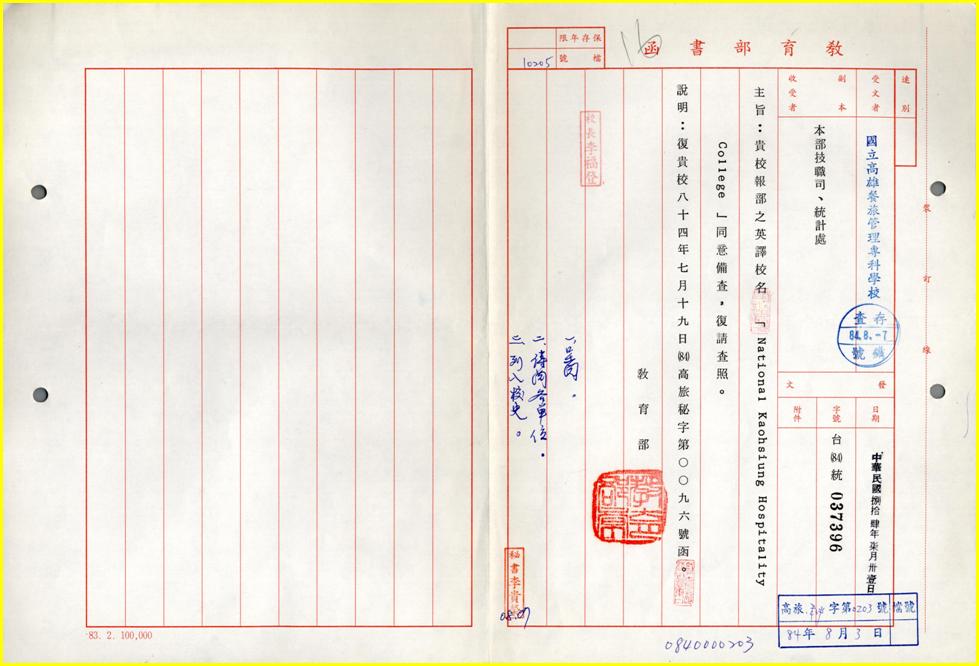 教育部書函
保存年限
檔號
10205
速別
受文者
國立高雄餐旅管理專科學校
副本收受者
本部技職司、統計處
存查
84.8.-7
號
發文
日期
中華民國捌拾肆年柒月卅壹日
字號
台(84)統 037396
附件
主旨：貴校報部之英譯校名「National Kaohsiung Hospitality
College」同意備查，復請查照。
說明：復貴校八十四年七月十九日(84)高旅秘字第○○九六號函。
教育部
校長李福登
二、轉知各單位。
三、列入校史。
秘書李貴
裝訂線
高旅 字第0203號 檔號
84年8月3日
0840000203
83. 2. 100,000